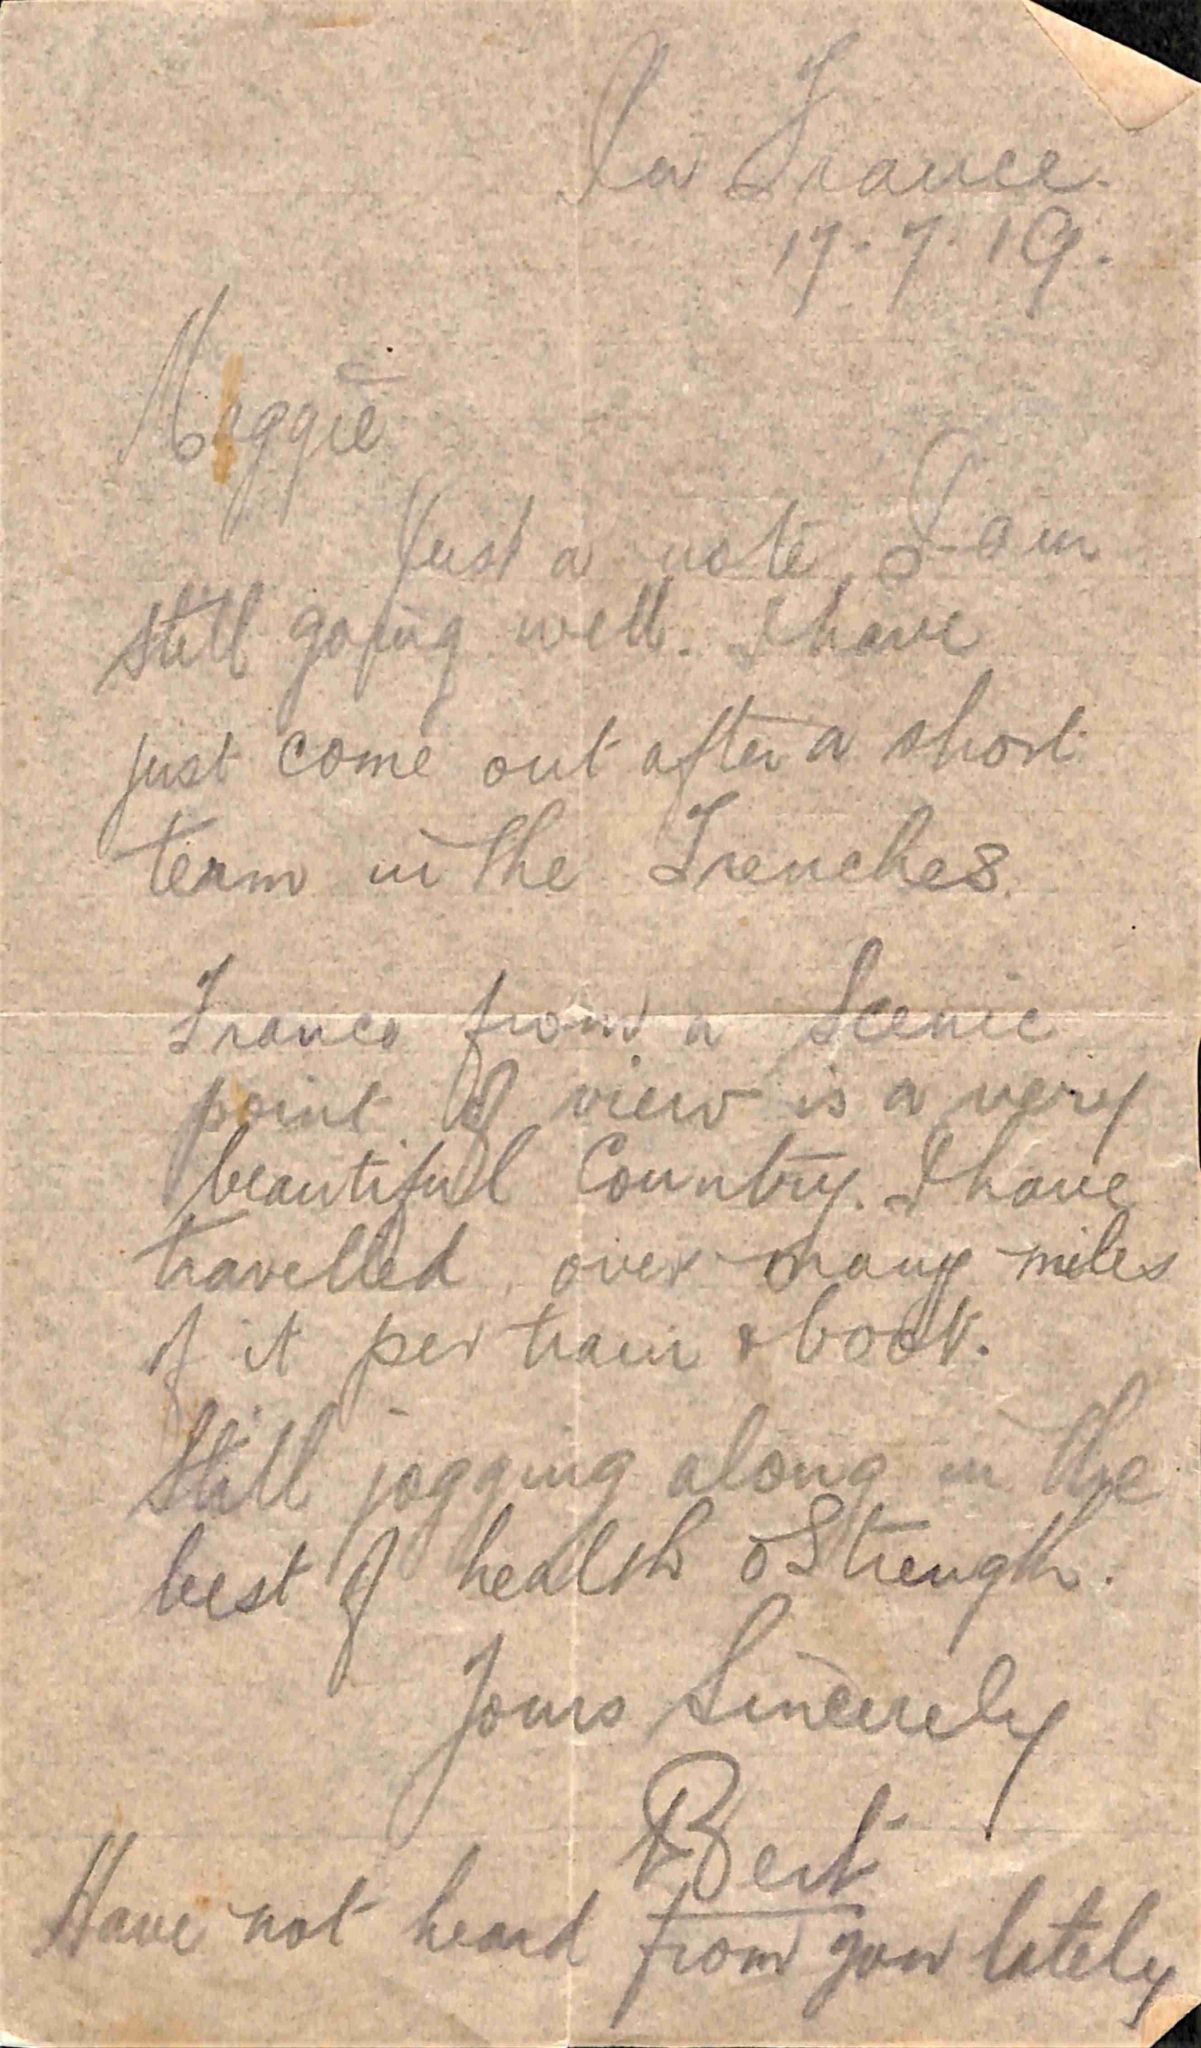 In France.
17.7.19.
Maggie
Just a note, I am
still going well. I have
just come out after a short
term in the Trenches.
France from a Scenic
point of view is a very
beautiful Country. I have
travelled over many miles
of it per train & boot.
Still jogging along in the
best of health & Strength.
Yours Sincerely
Bert
Have not heard from you lately